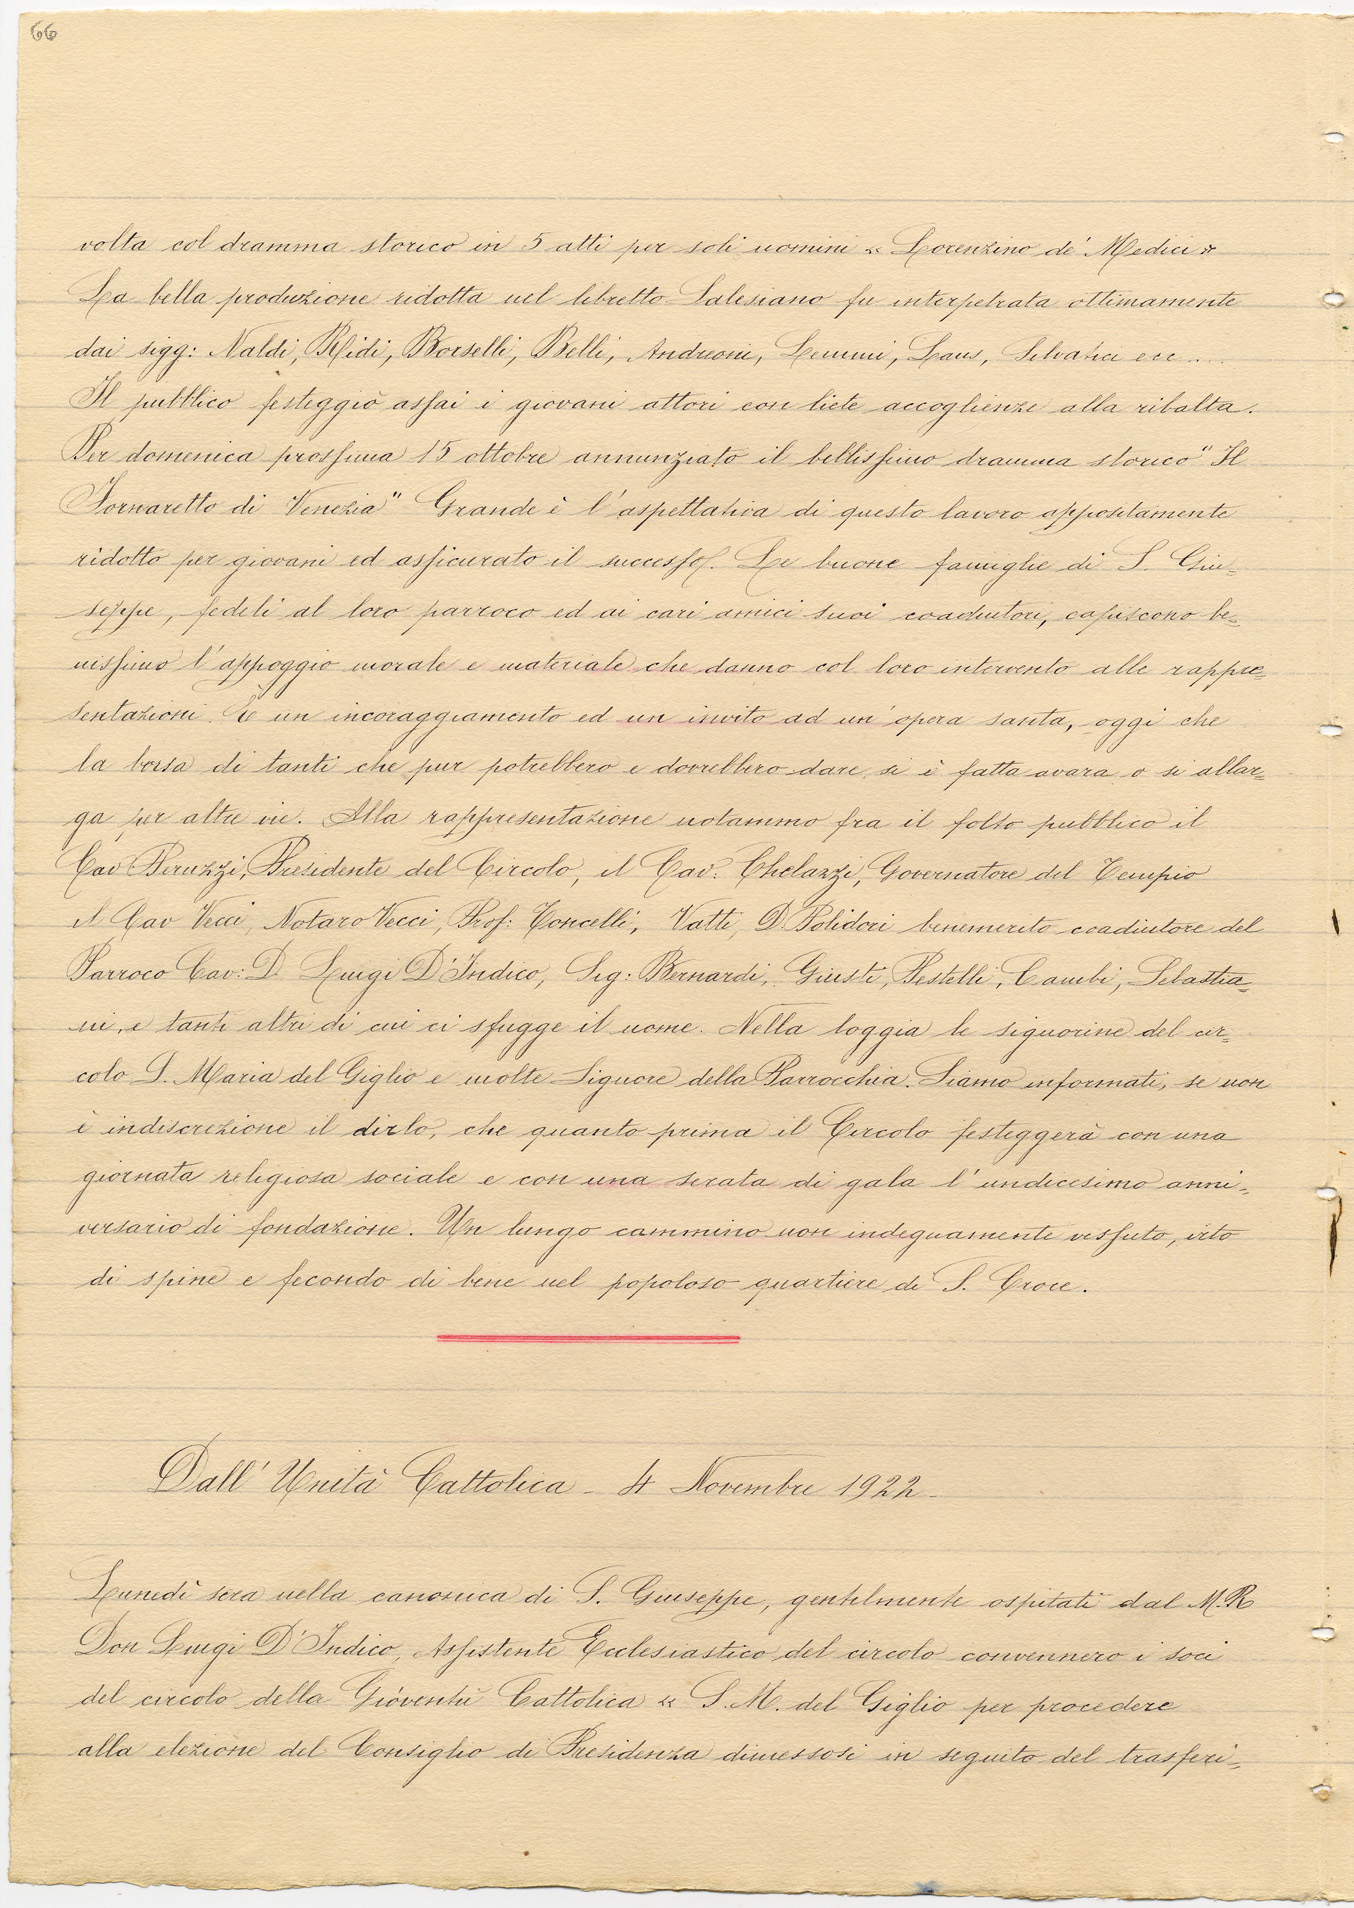 66
volta col dramma storico in 5 atti per soli uomini « Lorenzino de' Medici »
La bella produzione ridotta nel libretto Salesiano fu interpetrata ottimamente
dai sigg: Naldi, Ridi, Borselli, Belli, Andreoni, Lemmi, Laus, Selvatici ecc ....
Il pubblico festeggiò assai i giovani attori con liete accoglienze alla ribalta.
Per domenica prossima 15 ottobre annunziato il bellissimo dramma storico " Il
Fornaretto di Venezia" Grande è l'aspettativa di questo lavoro appositamente
ridotto per giovani ed assicurato il successo. Le buone famiglie di S. Giu=
seppe, fedeli al loro parroco ed ai cari amici suoi coadiutori, capiscono be=
nissimo l'appoggio morale e materiale che danno col loro intervento alle rappre=
sentazioni. È un incoraggiamento ed un invito ad un'opera santa, oggi che
la borsa di tanti che pur potrebbero e dovrebbero dare, si è fatta avara o si allar=
ga per altre vie. Alla rappresentazione notammo fra il folto pubblico il
Cav Peruzzi, Presidente del Circolo, il Cav: Chelazzi, Governatore del Tempio
il Cav Vecci, Notaro Vecci, Prof: Toncelli, Vatti, D. Polidori benemerito coadiutore del
Parroco Cav: D. Luigi D'Indico, Sig: Bernardi, Giusti, Pestelli, Cambi, Sebastia=
ni, e tanti altri di cui ci sfugge il nome. Nella loggia le signorine del cir=
colo S. Maria del Giglio e molte Signore della Parrocchia. Siamo informati, se non
è indiscrezione il dirlo, che quanto prima il Circolo festeggerà con una
giornata religiosa sociale e con una serata di gala l'undicesimo anni=
versario di fondazione. Un lungo cammino non indegnamente vissuto, irto
di spine e fecondo di bene nel popoloso quartiere di S. Croce.
Dall' Unità Cattolica - 4 Novembre 1922 -
Lunedì sera nella canonica di S. Giuseppe, gentilmente ospitati dal M.R
Don Luigi D'Indico, Assistente Ecclesiastico del circolo convennero i soci
del circolo della Gioventù Cattolica « S. M. del Giglio per procedere
alla elezione del Consiglio di Presidenza dimessosi in seguito del trasferi=